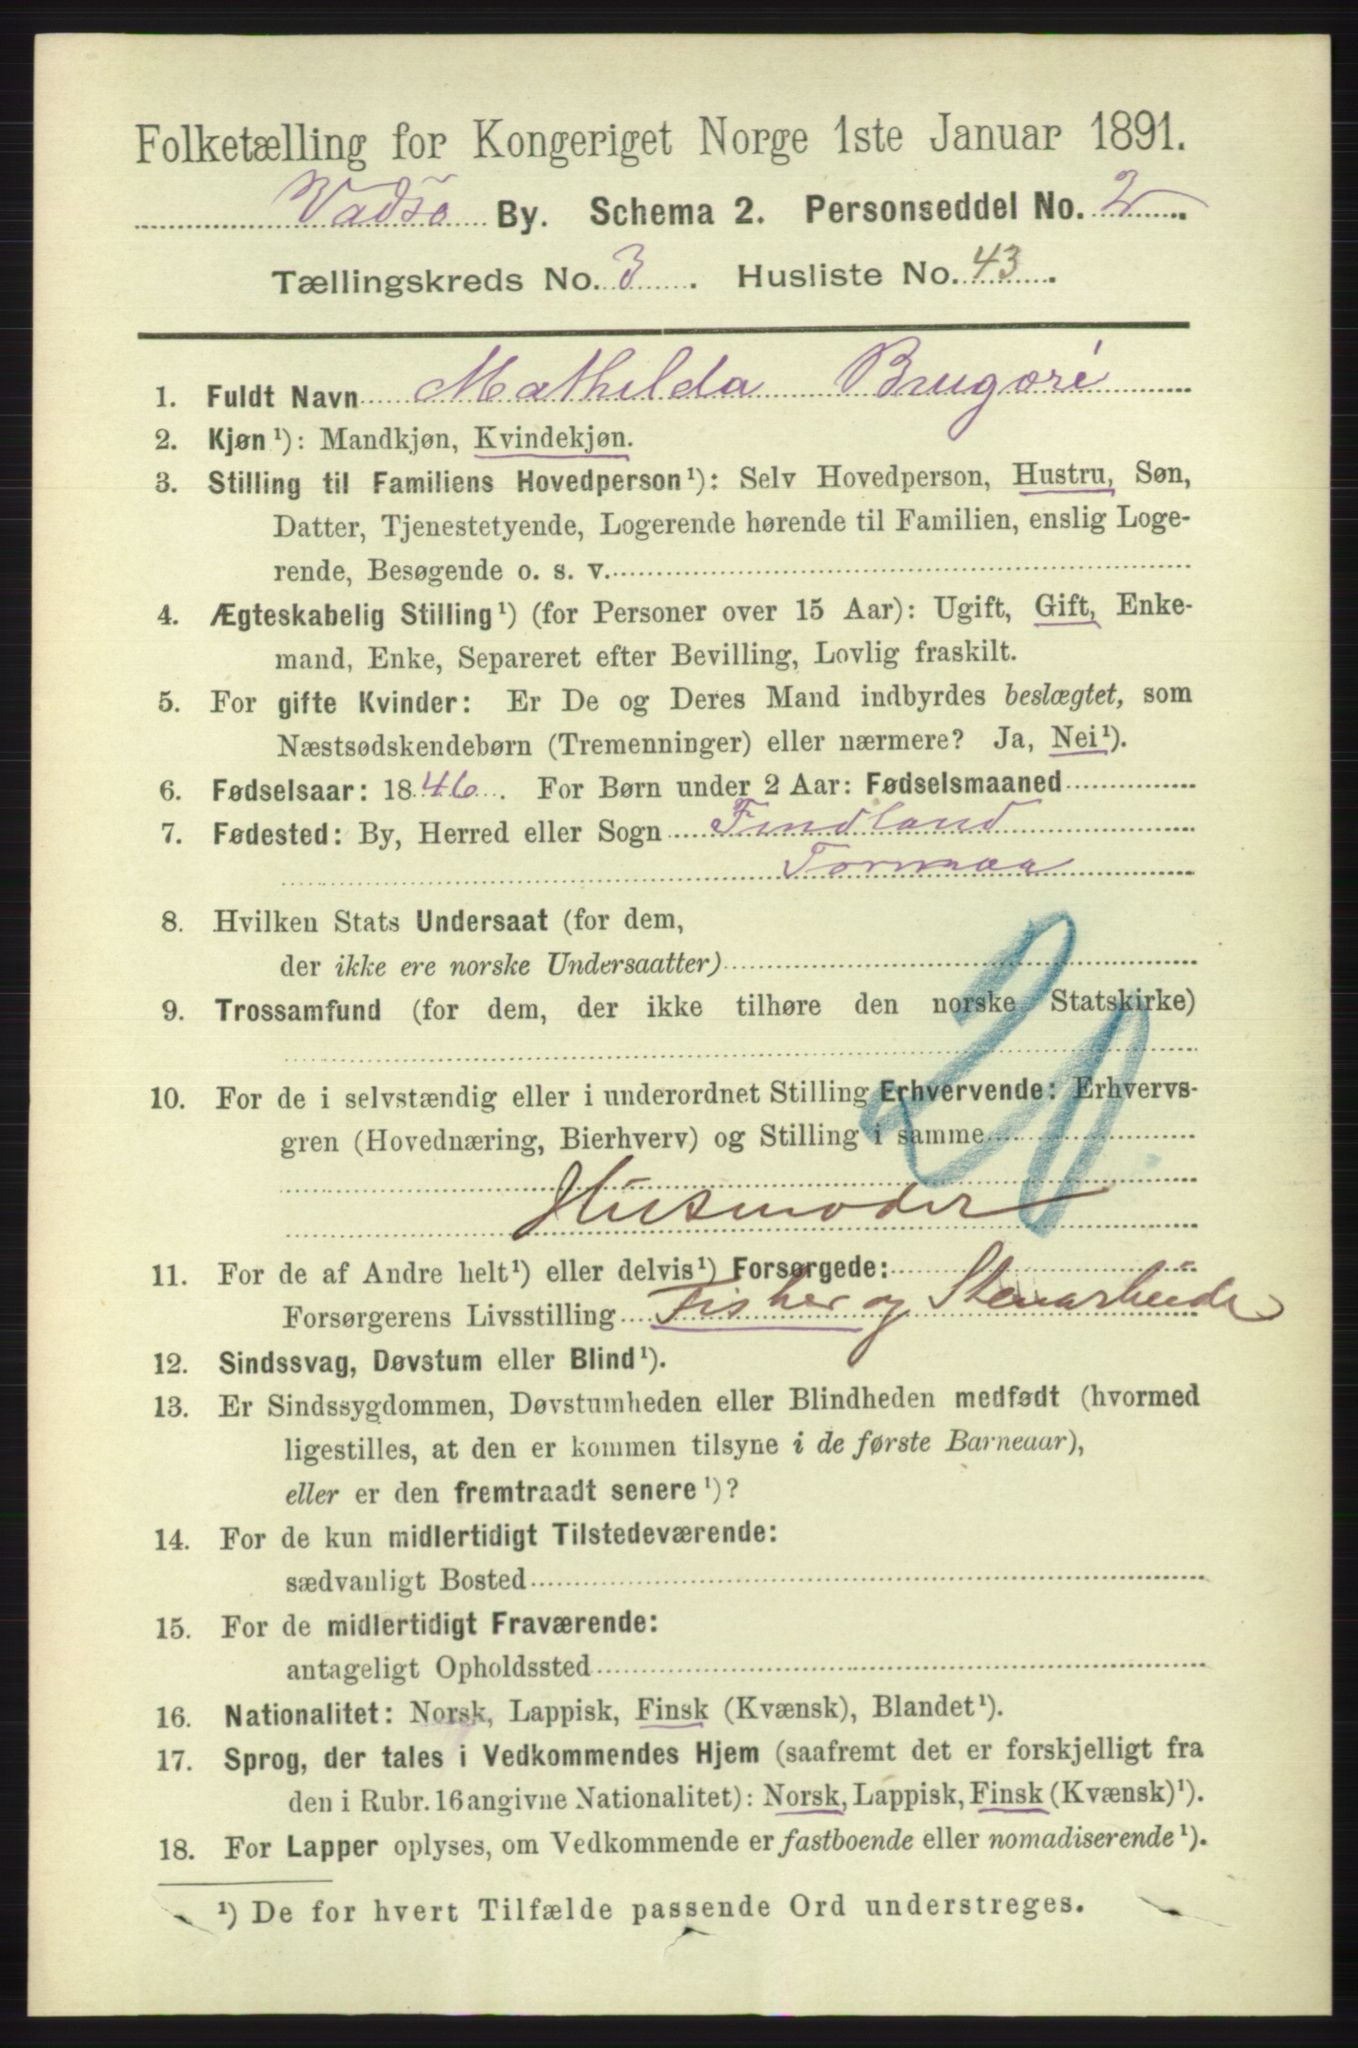 Folketælling for Kongeriget Norge 1ste Januar 1891.
Vadsø By. Schema 2. Personseddel No. 2
Tællingskreds No. 3. Husliste No. 43.
1. Fuldt Navn Mathilda Brugoré
2. Kjøn¹): Mandkjøn, Kvindekjøn.
3. Stilling til Familiens Hovedperson¹): Selv Hovedperson, Hustru, Søn,
Datter, Tjenestetyende, Logerende hørende til Familien, enslig Loge-
rende, Besøgende o. s. v.
4. Ægteskabelig Stilling¹) (for Personer over 15 Aar): Ugift, Gift, Enke-
mand, Enke, Separeret efter Bevilling, Lovlig fraskilt.
5. For gifte Kvinder: Er De og Deres Mand indbyrdes beslægtet, som
Næstsødskendebørn (Tremenninger) eller nærmere? Ja, Nei¹).
6. Fødselsaar: 1846. For Børn under 2 Aar: Fødselsmaaned
7. Fødested: By, Herred eller Sogn Findland
Tornaa
8. Hvilken Stats Undersaat (for dem,
der ikke ere norske Undersaatter)
9. Trossamfund (for dem, der ikke tilhøre den norske Statskirke)
20
10. For de i selvstændig eller i underordnet Stilling Erhvervende: Erhvervs-
gren (Hovednæring, Bierhverv) og Stilling i samme
Husmoder
11. For de af Andre helt¹) eller delvis¹) Forsørgede:
Forsørgerens Livsstilling Fisker og Stenarbeide
12. Sindssvag, Døvstum eller Blind¹).
13. Er Sindssygdommen, Døvstumheden eller Blindheden medfødt (hvormed
ligestilles, at den er kommen tilsyne i de første Barneaar),
eller er den fremtraadt senere¹)?
14. For de kun midlertidigt Tilstedeværende:
sædvanligt Bosted
15. For de midlertidigt Fraværende:
antageligt Opholdssted
16. Nationalitet: Norsk, Lappisk, Finsk (Kvænsk), Blandet¹).
17. Sprog, der tales i Vedkommendes Hjem (saafremt det er forskjelligt fra
den i Rubr. 16 angivne Nationalitet): Norsk, Lappisk, Finsk (Kvænsk)¹).
18. For Lapper oplyses, om Vedkommende er fastboende eller nomadiserende¹).
¹) De for hvert Tilfælde passende Ord understreges.